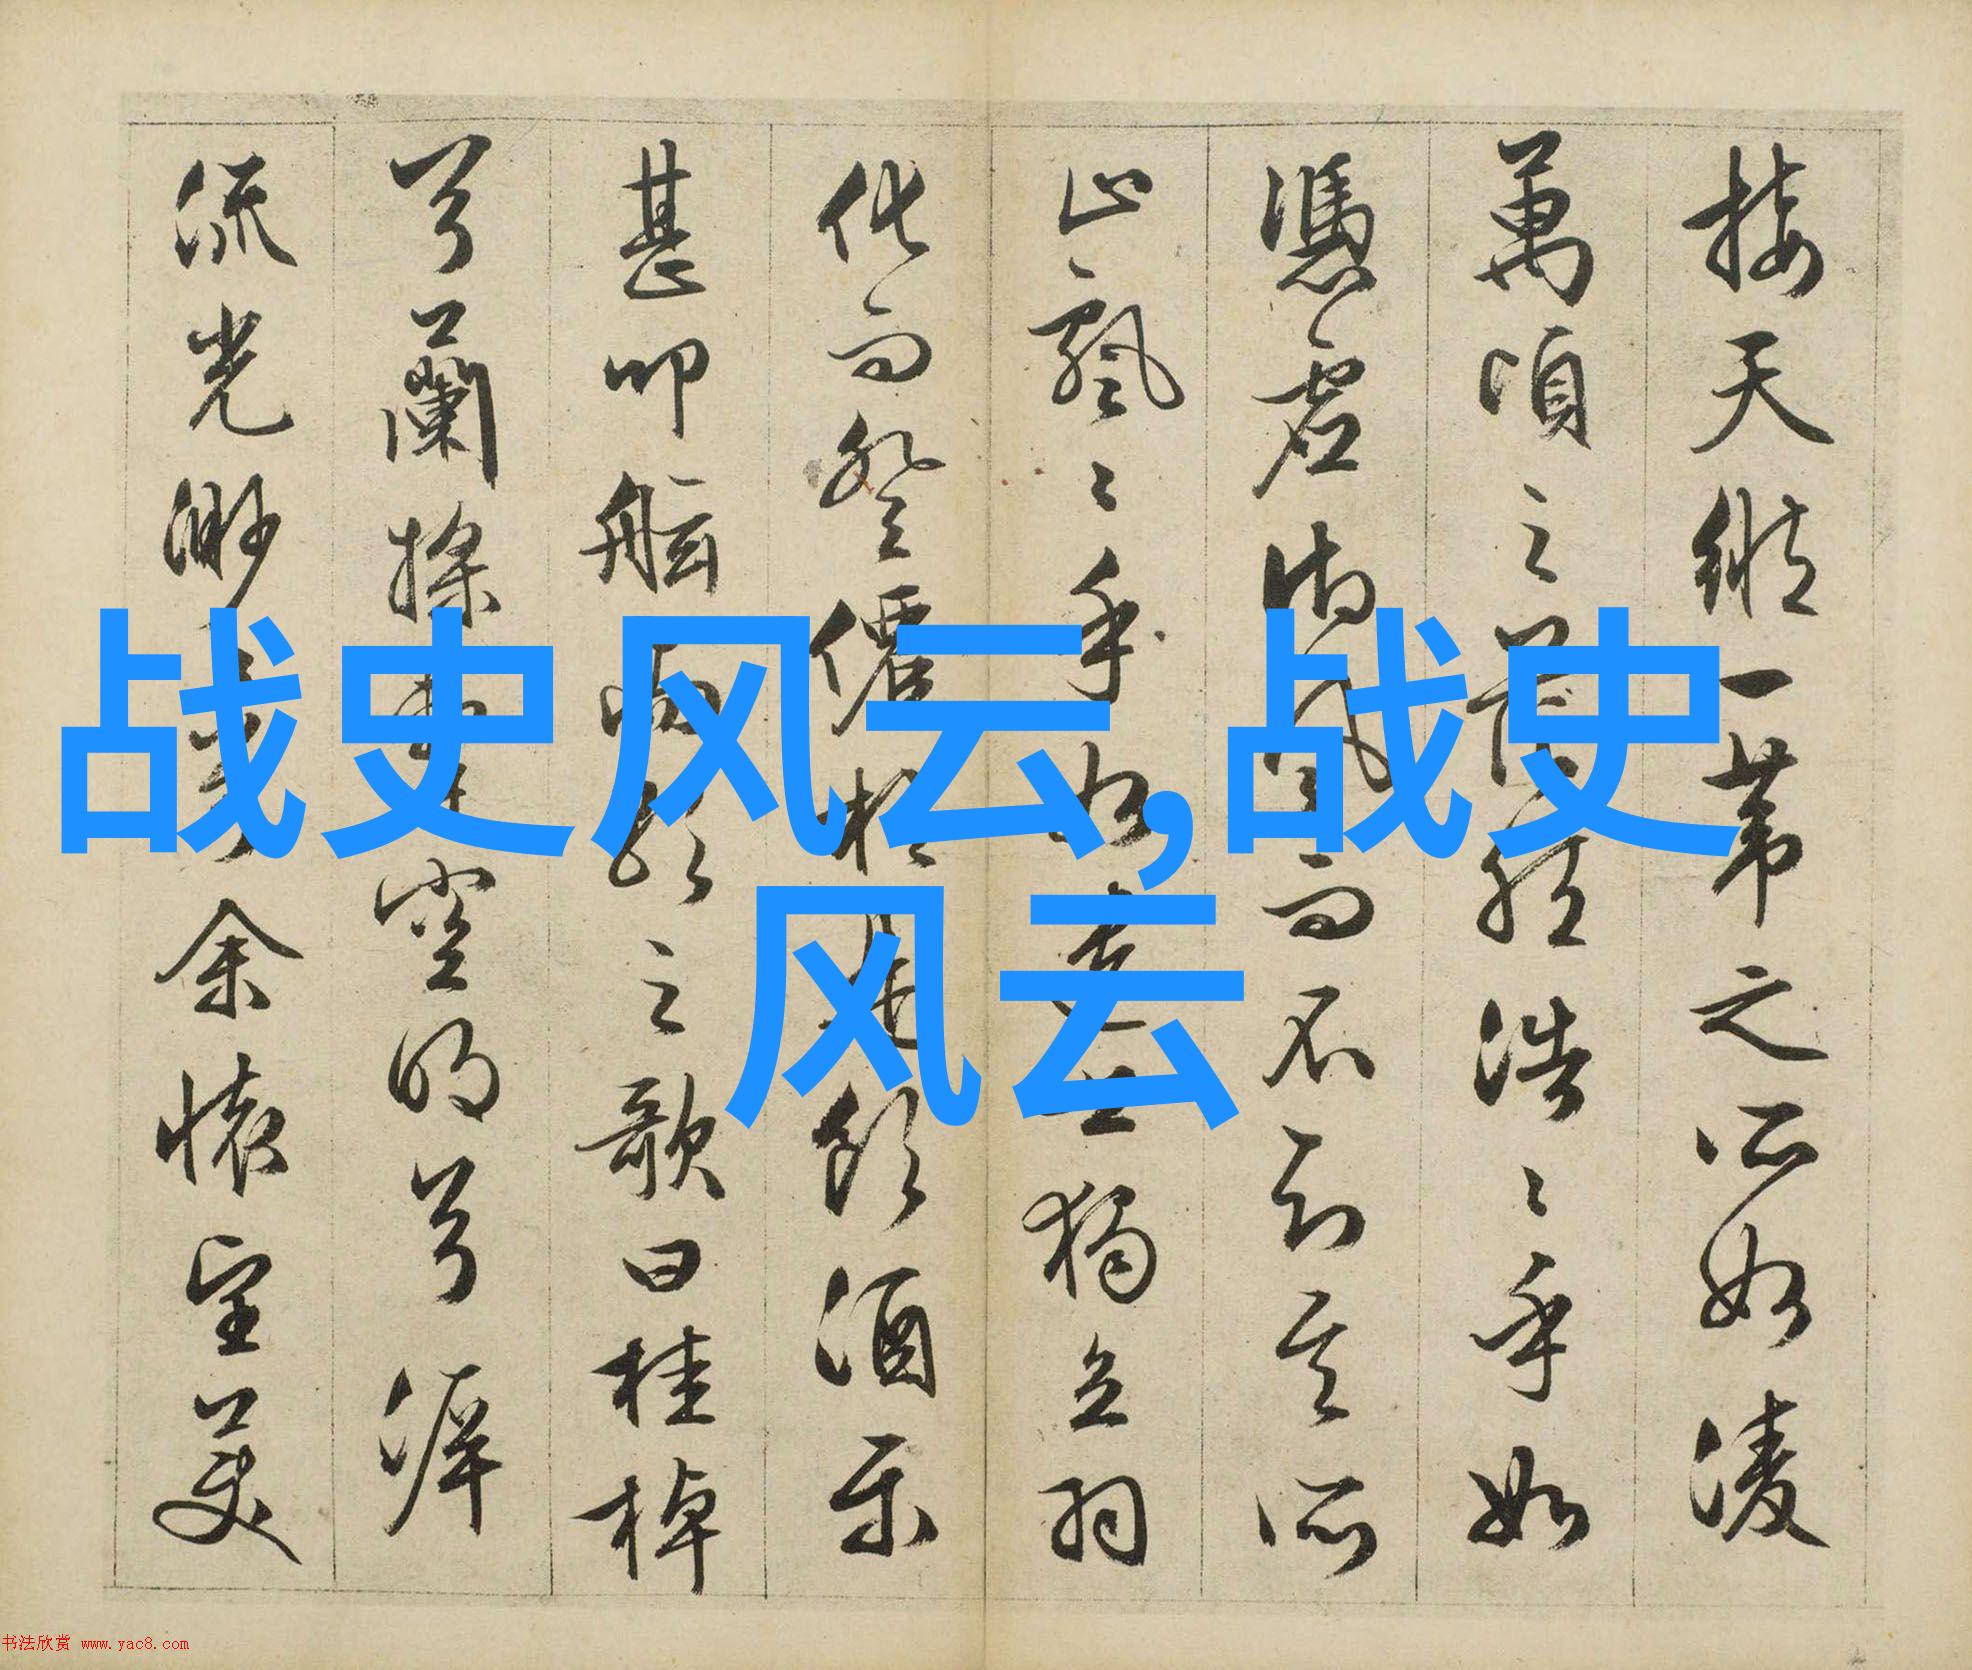 接天縱一葦之所如凌
萬頃之茫然浩〻乎如
憑虛御風而不知其所
止飄〻乎如遺世獨立羽
化而登僊於是飲酒樂
甚叩舷而歌之歌曰桂棹
兮蘭槳擊空明兮泝
流光渺〻兮余懷望美
战史风云,战史
风云
书法欣赏 www.yac8.com